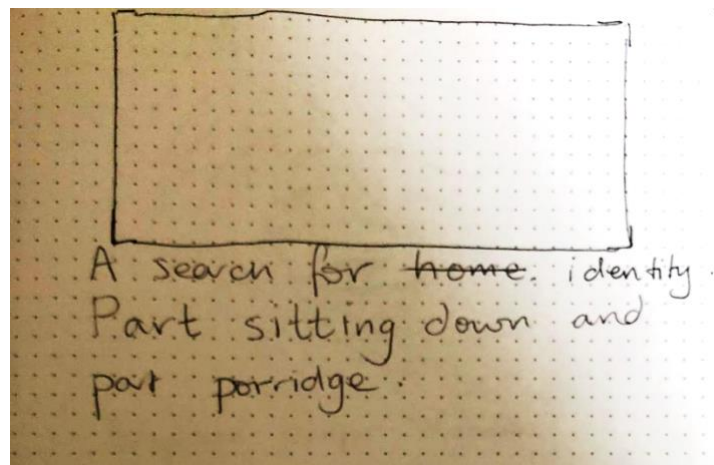 A search for home. identity.
Part sitting down and
part porridge.